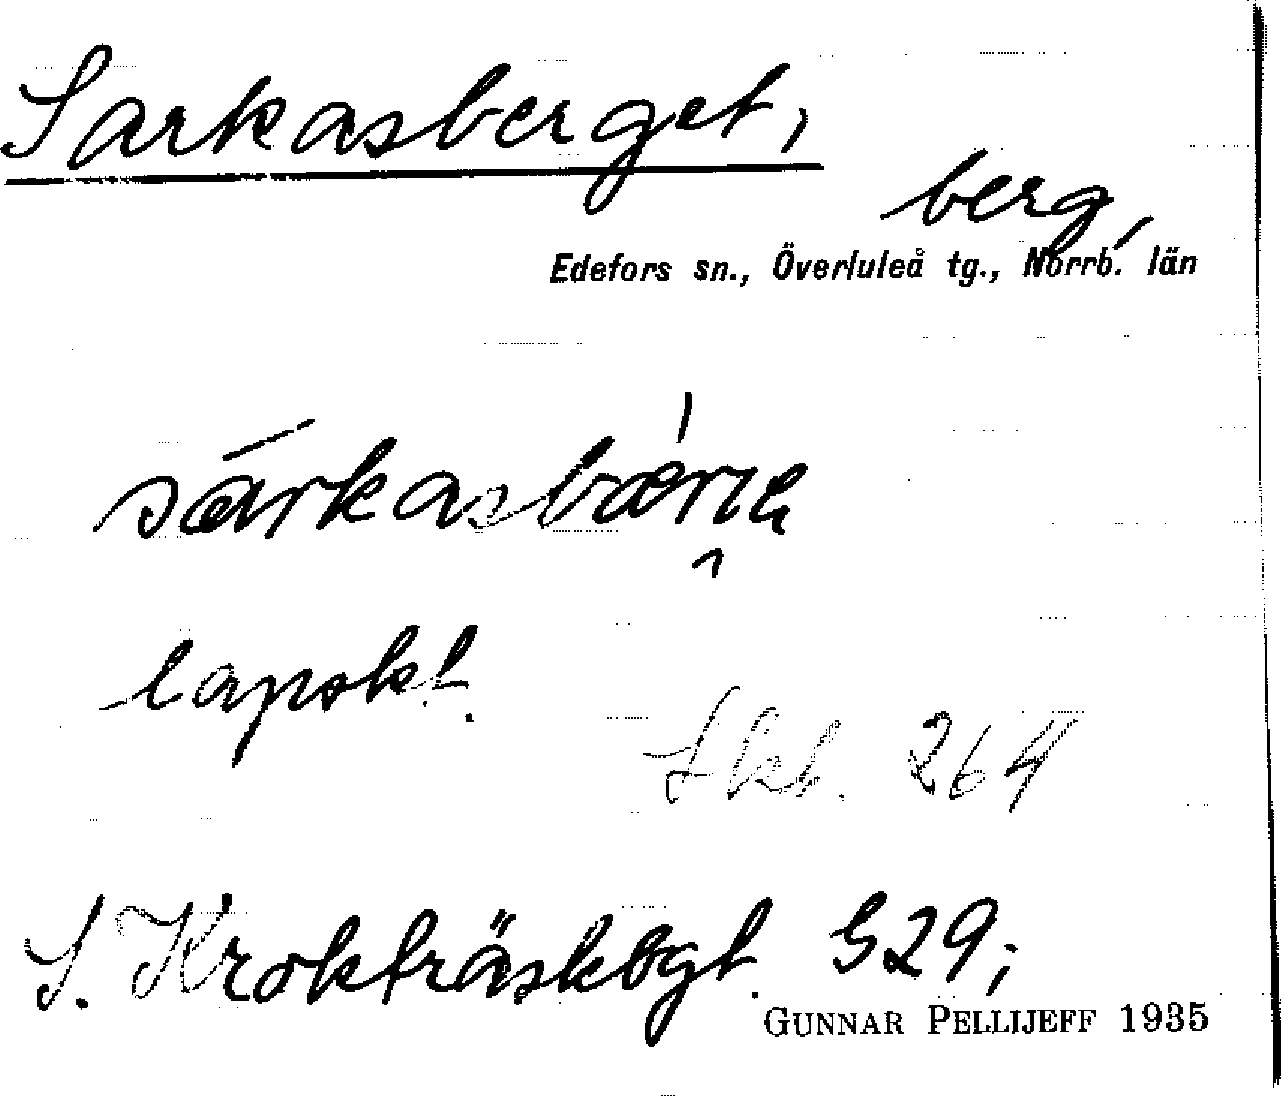 Sarkasberget,
berg,
Edefors sn., Överluleå tg., Norrb. län
lapskt.
Skb. 264
S. Krokträskbgt. G29;
GUNNAR PELLIJEFF 1935